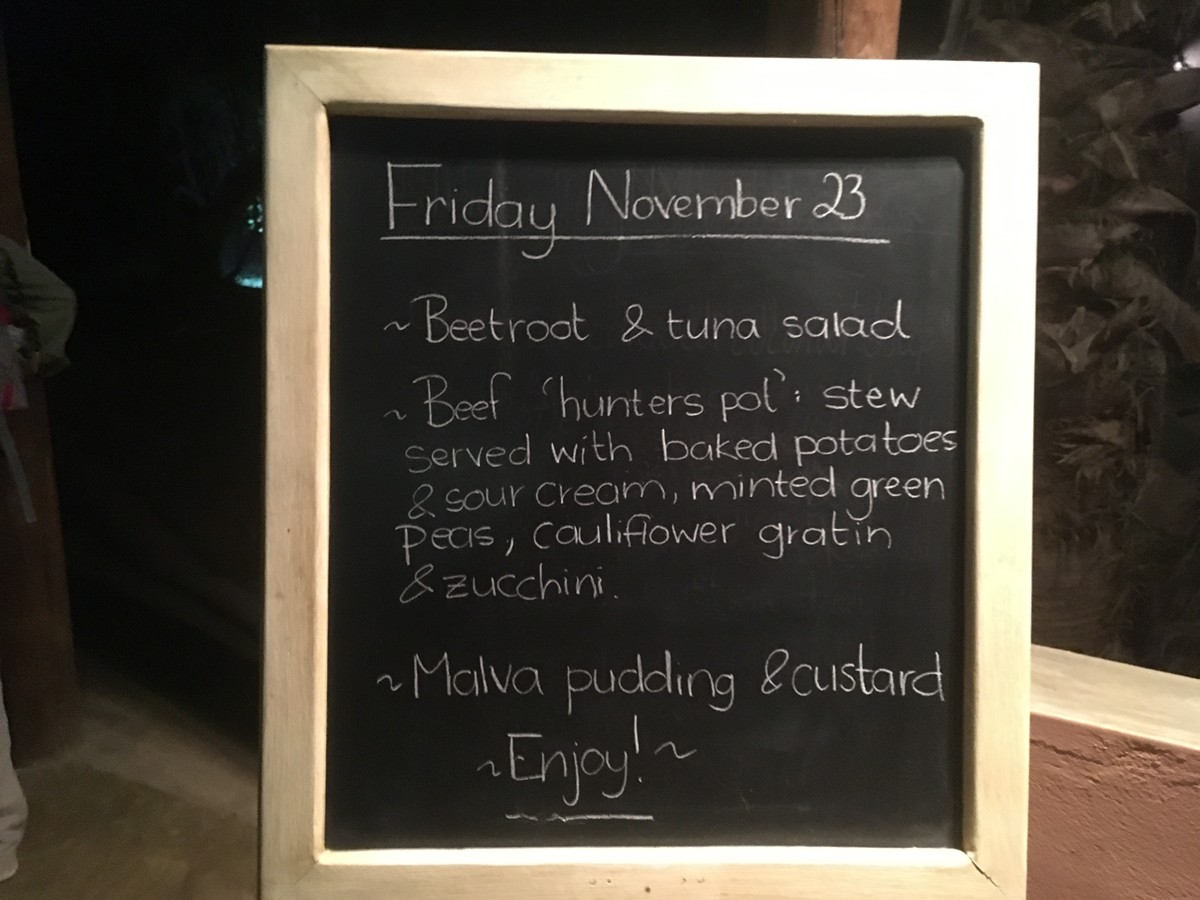 Friday November 23
~ Beetroot & tuna salad
~ Beef 'hunters pot': stew
served with baked potatoes
& sour cream, minted green
peas, cauliflower gratin
& zucchini.
~ Malva pudding & custard
~ Enjoy! ~